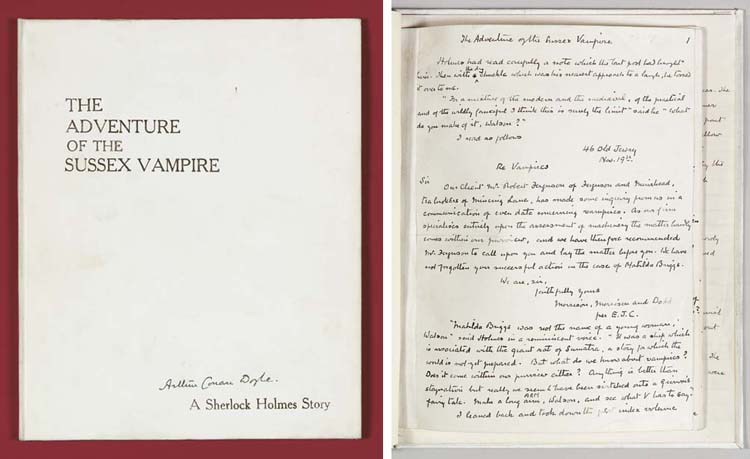 THE
ADVENTURE
OF THE
SUSSEX VAMPIRE
Arthur Conan Doyle.
A Sherlock Holmes Story
The Adventure of the Sussex Vampire
1
Holmes had read carefully a note which the last post had brought
him. Then with the dry chuckle which was his nearest approach to a laugh, he tossed
it over to me.
"For a mixture of the modern and the mediaeval, of the practical
and of the wildly fanciful I think this is surely the limit" said he "What
do you make of it, Watson?"
I read as follows
46 Old Jewry
Nov. 19th.
Re Vampires
Sir
Our Client Mr. Robert Ferguson of Ferguson and Muirhead,
tea brokers of Mincing Lane, has made some inquiry from us in a
communication of even date concerning vampires. As our firm
specialises entirely upon the assessment of machinery the matter hardly
comes within our purview, and we have therefore recommended
Mr. Ferguson to call upon you and lay the matter before you. We have
not forgotten your successful action in the case of Matilda Briggs.
We are, sir,
faithfully yours
Morrison, Morrison and Dodd
per E.J.C.
"Matilda Briggs was not the name of a young woman,
Watson" said Holmes in a reminiscent voice. "It was a ship which
is associated with the giant rat of Sumatra, a story for which the
world is not yet prepared. But what do we know about vampires?
Does it come within our purview either? Anything is better than
stagnation but really we seem to have been switched onto a Grimms
fairy tale. Make a long arm, ARM Watson, and see what V has to say.
I leaned back and took down the index volume